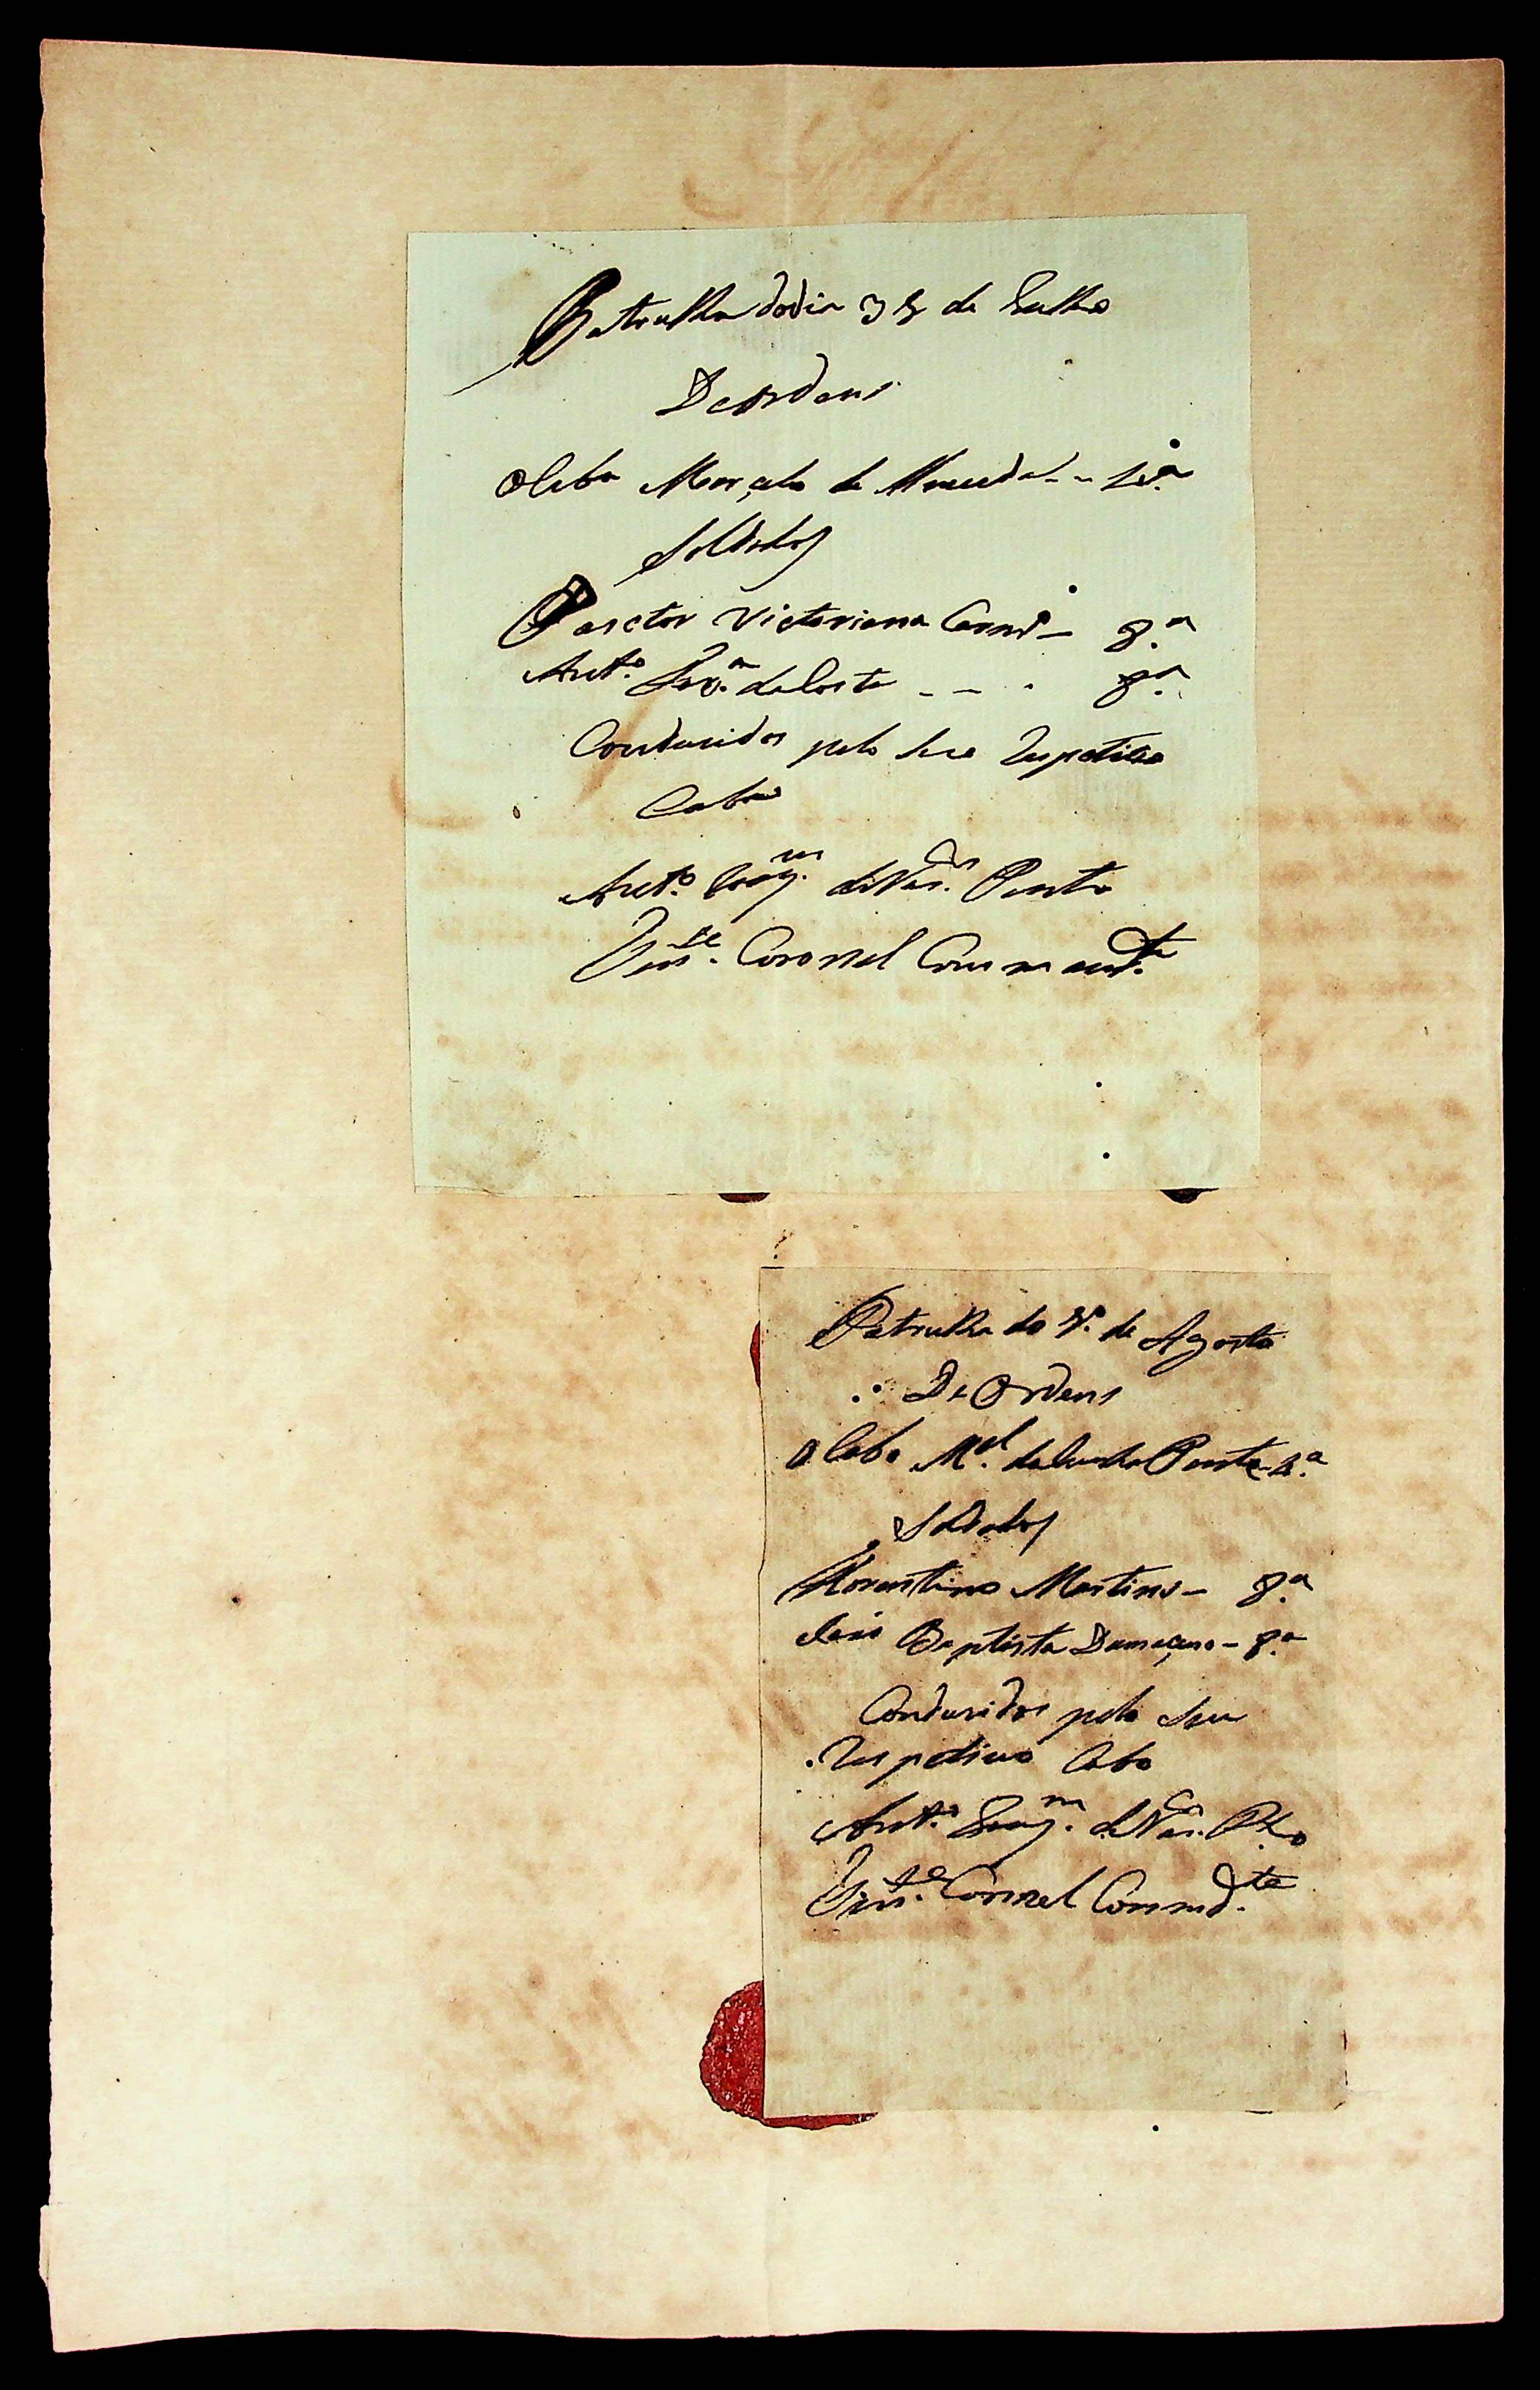 Patrulha do dia 31 de Julho
De Ordens
O Cabo Marçelo de - - 1.ª
Soldados
Pastor Victoriano - 8.ª
Ant.º da Costa - - . 8.ª
Condusidos pelo seu Respetivo
Cabo
Ant.º Joaq.m de Pinto
Ten.te Coronel Commend.te
Patrulha do 1.º de Agosto
De Ordens
O Cabo M.el da Cunha Ponte - 2.ª
Soldados
Florentino Martins - 8.ª
Baptista Damaçeno - 8.ª
Condusidos pelo seu
Respetivo Cabo
Ant.º Joaq.m de P.to
Ten.te Coronel Commd.te